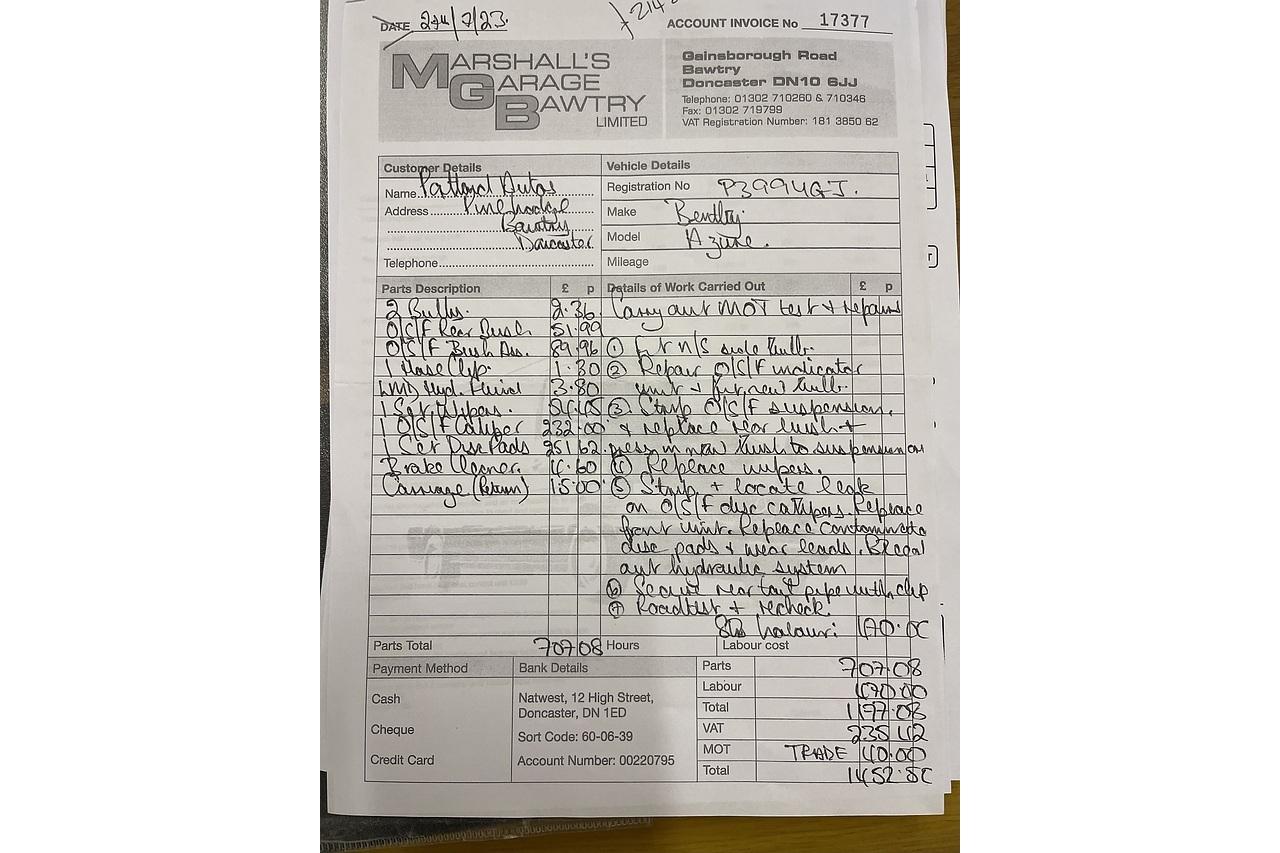 DATE 24/7/23.
ACCOUNT INVOICE No 17377
MARSHALL'S
GARAGE
BAWTRY
LIMITED
Gainsborough Road
Bawtry
Doncaster DN10 6JJ
Telephone: 01302 710260 & 710346
Fax: 01302 719799
VAT Registration Number: 181 3850 62
Customer Details
Name Autos
Address
Bawtry
Doncaster
Telephone
Vehicle Details
Registration No P399UGJ.
Make Bentley
Model Azure.
Mileage
Parts Description £ p
2 Bulbs. 2.36
O/S/F Rear Bush 51.99
O/S/F Bush Ass. 89.96
1 Hose Clip. 1.30
LMD Hyd. Fluid 3.80
1 Set Wipers. 54.45
1 O/S/F Caliper 232.00
1 Set Disc Pads 251.62
Brake Cleaner. 4.60
Carriage (Return) 15.00
Details of Work Carried Out £ p
Carry out MOT test & repairs
① Fit n/s side bulb.
② Repair O/S/F indicator
unit & fit new bulb.
③ Strip O/S/F suspension.
& replace rear bush &
press in new bush to suspension arm
④ Replace wipers.
⑤ Strip & locate leak
on O/S/F disc calipers. Replace
front unit. Replace contaminated
disc pads & wear leads. Bleed
out hydraulic system
⑥ Secure rear tail pipe with clip
⑦ Roadtest & recheck.
labour: 470.00
Parts Total 707.08
Hours
Labour cost
Payment Method
Cash
Cheque
Credit Card
Bank Details
Natwest, 12 High Street,
Doncaster, DN 1ED
Sort Code: 60-06-39
Account Number: 00220795
Parts 707.08
Labour 470.00
Total 1177.08
VAT 235.42
MOT TRADE 40.00
Total 1452.50